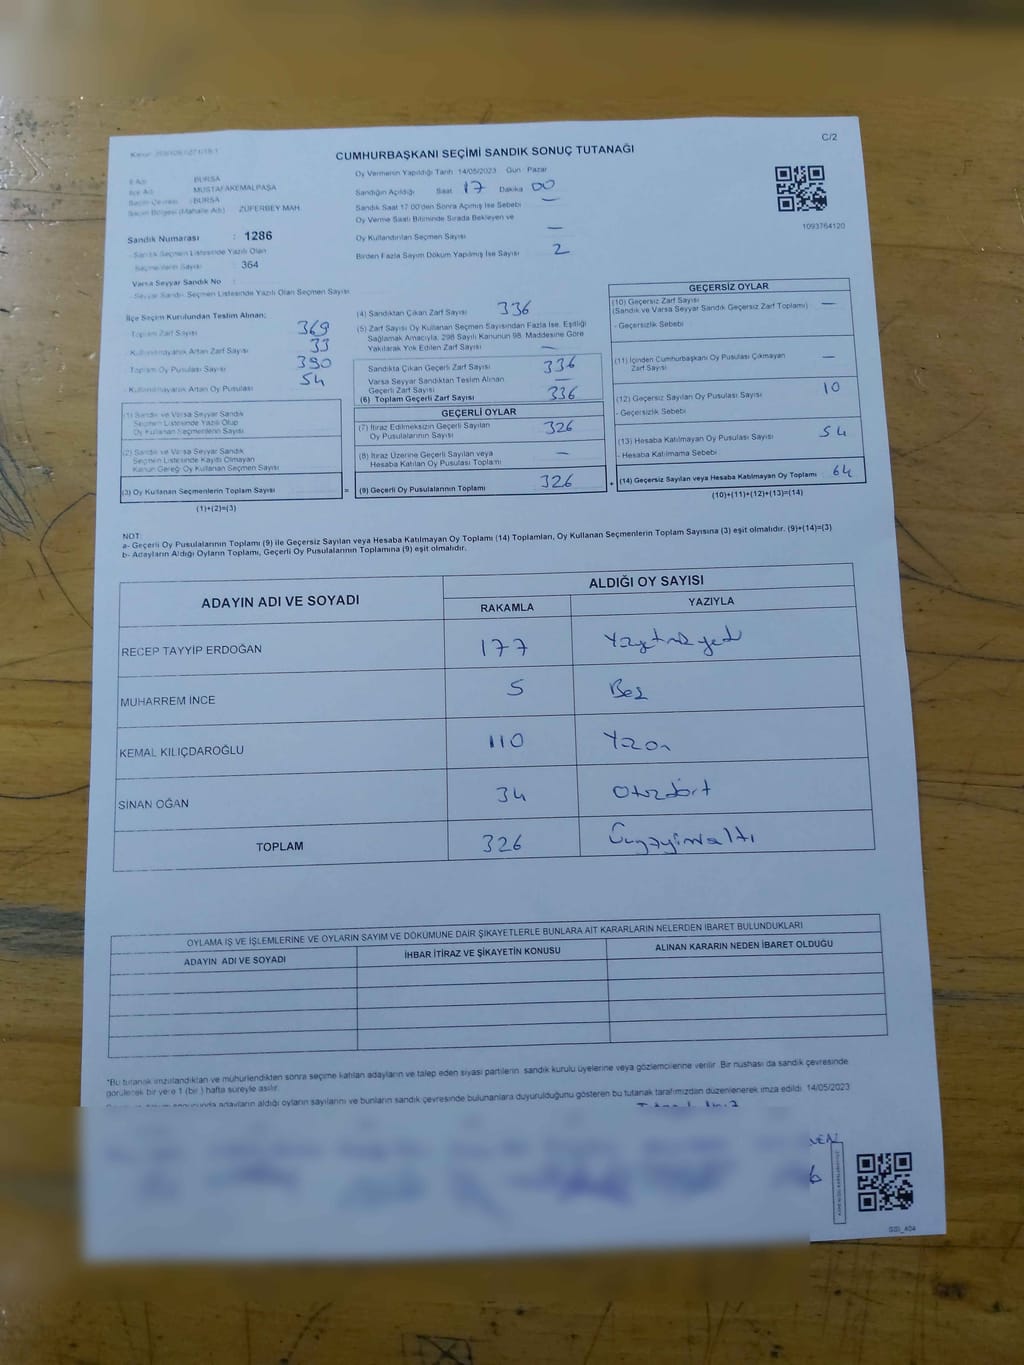 C/2
CUMHURBAŞKANI SEÇİMİ SANDIK SONUÇ TUTANAĞI
İli Adı : BURSA
İlçe Adı : MUSTAFAKEMALPAŞA
Seçim Çevresi : BURSA
Seçim Bölgesi (Mahalle Adı) : ZÜFERBEY MAH
Sandık Numarası : 1286
- Sandık Seçmen Listesinde Yazılı Olan
Seçmenlerin Sayısı : 364
Varsa Seyyar Sandık No :
- Seyyar Sandık Seçmen Listesinde Yazılı Olan Seçmen Sayısı
Oy Vermenin Yapıldığı Tarih 14/05/2023 Gün Pazar
Sandığın Açıldığı Saat 17 Dakika 00
Sandık Saat 17.00'den Sonra Açılmış İse Sebebi —
Oy Verme Saati Bitiminde Sırada Bekleyen ve
Oy Kullandırılan Seçmen Sayısı —
Birden Fazla Sayım Döküm Yapılmış İse Sayısı 2
1093764120
İlçe Seçim Kurulundan Teslim Alınan;
Toplam Zarf Sayısı 369
Kullanılmayarak Artan Zarf Sayısı 33
Toplam Oy Pusulası Sayısı 390
- Kullanılmayarak Artan Oy Pusulası 54
(1) Sandık ve Varsa Seyyar Sandık
Seçmen Listesinde Yazılı Olup
Oy Kullanan Seçmenlerin Sayısı
(2) Sandık ve Varsa Seyyar Sandık
Seçmen Listesinde Kayıtlı Olmayan
Kanun Gereği Oy Kullanan Seçmen Sayısı
(3) Oy Kullanan Seçmenlerin Toplam Sayısı
=
(1)+(2)=(3)
(4) Sandıktan Çıkan Zarf Sayısı 336
(5) Zarf Sayısı Oy Kullanan Seçmen Sayısından Fazla İse, Eşitliği
Sağlamak Amacıyla, 298 Sayılı Kanunun 98. Maddesine Göre
Yakılarak Yok Edilen Zarf Sayısı —
Sandıkta Çıkan Geçerli Zarf Sayısı 336
Varsa Seyyar Sandıktan Teslim Alınan
Geçerli Zarf Sayısı —
(6) Toplam Geçerli Zarf Sayısı 336
GEÇERLİ OYLAR
(7) İtiraz Edilmeksizin Geçerli Sayılan
Oy Pusulalarının Sayısı 326
(8) İtiraz Üzerine Geçerli Sayılan veya
Hesaba Katılan Oy Pusulası Toplamı —
(9) Geçerli Oy Pusulalarının Toplamı 326
+
GEÇERSİZ OYLAR
(10) Geçersiz Zarf Sayısı
(Sandık ve Varsa Seyyar Sandık Geçersiz Zarf Toplamı) —
- Geçersizlik Sebebi
(11) İçinden Cumhurbaşkanı Oy Pusulası Çıkmayan
Zarf Sayısı —
(12) Geçersiz Sayılan Oy Pusulası Sayısı 10
- Geçersizlik Sebebi
(13) Hesaba Katılmayan Oy Pusulası Sayısı 54
- Hesaba Katılmama Sebebi
(14) Geçersiz Sayılan veya Hesaba Katılmayan Oy Toplamı 64
(10)+(11)+(12)+(13)=(14)
NOT:
a- Geçerli Oy Pusulalarının Toplamı (9) ile Geçersiz Sayılan veya Hesaba Katılmayan Oy Toplamı (14) Toplamları, Oy Kullanan Seçmenlerin Toplam Sayısına (3) eşit olmalıdır. (9)+(14)=(3)
b- Adayların Aldığı Oyların Toplamı, Geçerli Oy Pusulalarının Toplamına (9) eşit olmalıdır.
ADAYIN ADI VE SOYADI
ALDIĞI OY SAYISI
RAKAMLA YAZIYLA
RECEP TAYYİP ERDOĞAN 177 Yüzyetmişyedi
MUHARREM İNCE 5 Beş
KEMAL KILIÇDAROĞLU 110 Yüzon
SİNAN OĞAN 34 Otuzdört
TOPLAM 326 Üçyüzyirmialtı
OYLAMA İŞ VE İŞLEMLERİNE VE OYLARIN SAYIM VE DÖKÜMÜNE DAİR ŞİKAYETLERLE BUNLARA AİT KARARLARIN NELERDEN İBARET BULUNDUKLARI
ADAYIN ADI VE SOYADI İHBAR İTİRAZ VE ŞİKAYETİN KONUSU ALINAN KARARIN NEDEN İBARET OLDUĞU
*Bu tutanak imzalandıktan ve mühürlendikten sonra seçime katılan adayların ve talep eden siyasi partilerin sandık kurulu üyelerine veya gözlemcilerine verilir. Bir nüshası da sandık çevresinde
görülecek bir yere 1 (bir) hafta süreyle asılır.
adayların aldığı oyların sayılarını ve bunların sandık çevresinde bulunanlara duyurulduğunu gösteren bu tutanak tarafımızdan düzenlenerek imza edildi. 14/05/2023